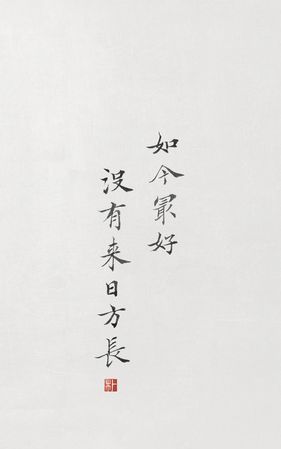 如今最好
没有来日方長